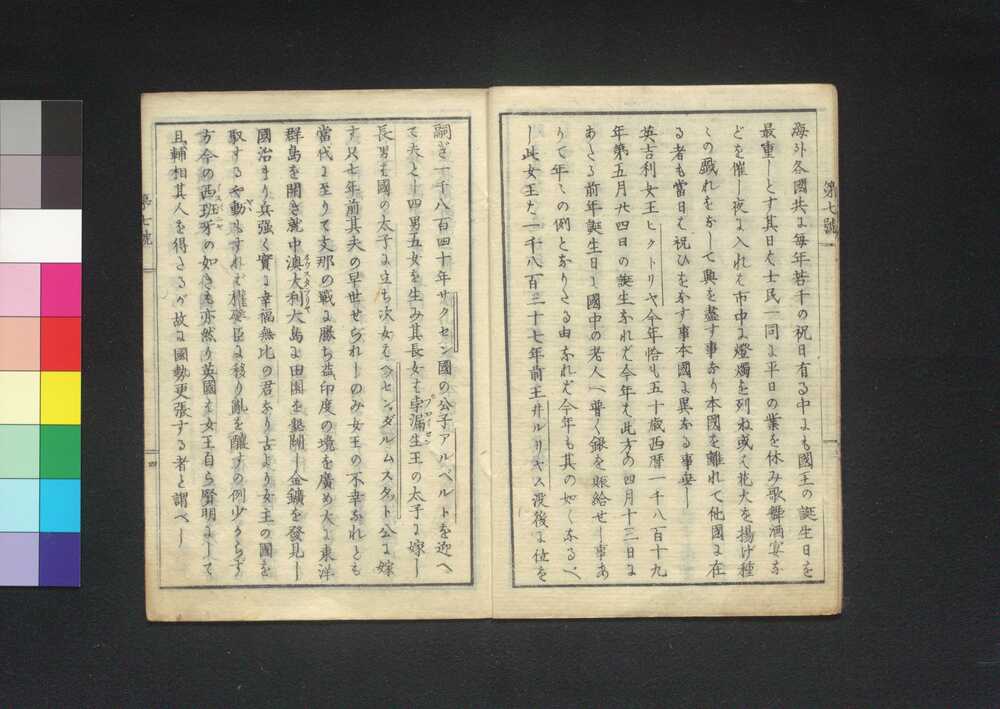 第七號
海外各國共に毎年若干の祝日有る中にも國王の誕生日を
最重しとす其日は士民一同に平日の業を休み歌舞酒宴な
どを催し夜に入れは市中に燈燭を列ね或は花火を揚げ種
〻の戯れをなして興を盡す事なり本國を離れて他國に在
る者も當日は祝ひをなす事本國に異なる事無し
英吉利女王ヒクトリヤ今年恰も五十歳西暦一千八百十九
年第五月廿四日の誕生なれは今年は此方の四月十三日に
あたる前年誕生日に國中の老人へ普く銀を賑給せし事あ
りて年〻の例となりたる由なれは今年も其の如くなるべ
し此女王は一千八百三十七年前王井ルリヤス没後に位を
嗣ぎ一千八百四十年サクセン國の公子アルベルトを迎へ
て夫とし四男五女を生み其長女は孛漏生王の太子に嫁し
プロイセン
長男は國の太子に立ち次女はヘセン、ダルムスタット公に嫁
す只七年前其夫の早世せられしのみ女王の不幸なれとも
當代に至りて支那の戰に勝ち益印度の境を廣め大に東洋
群島を開き就中澳大利大島に田園を墾闢し金鑛を發見し
オウスタラリヤ
國治まり兵強く實に幸福無比の君なり古より女主の國を
馭するや動もすれは權嬖臣に移り亂を釀すの例少からず
方今の西班牙の如きも亦然り英國は女王自ら賢明にして
イスパニヤ
且輔相其人を得さるが故に國勢更張する者と謂べし
第七號
四